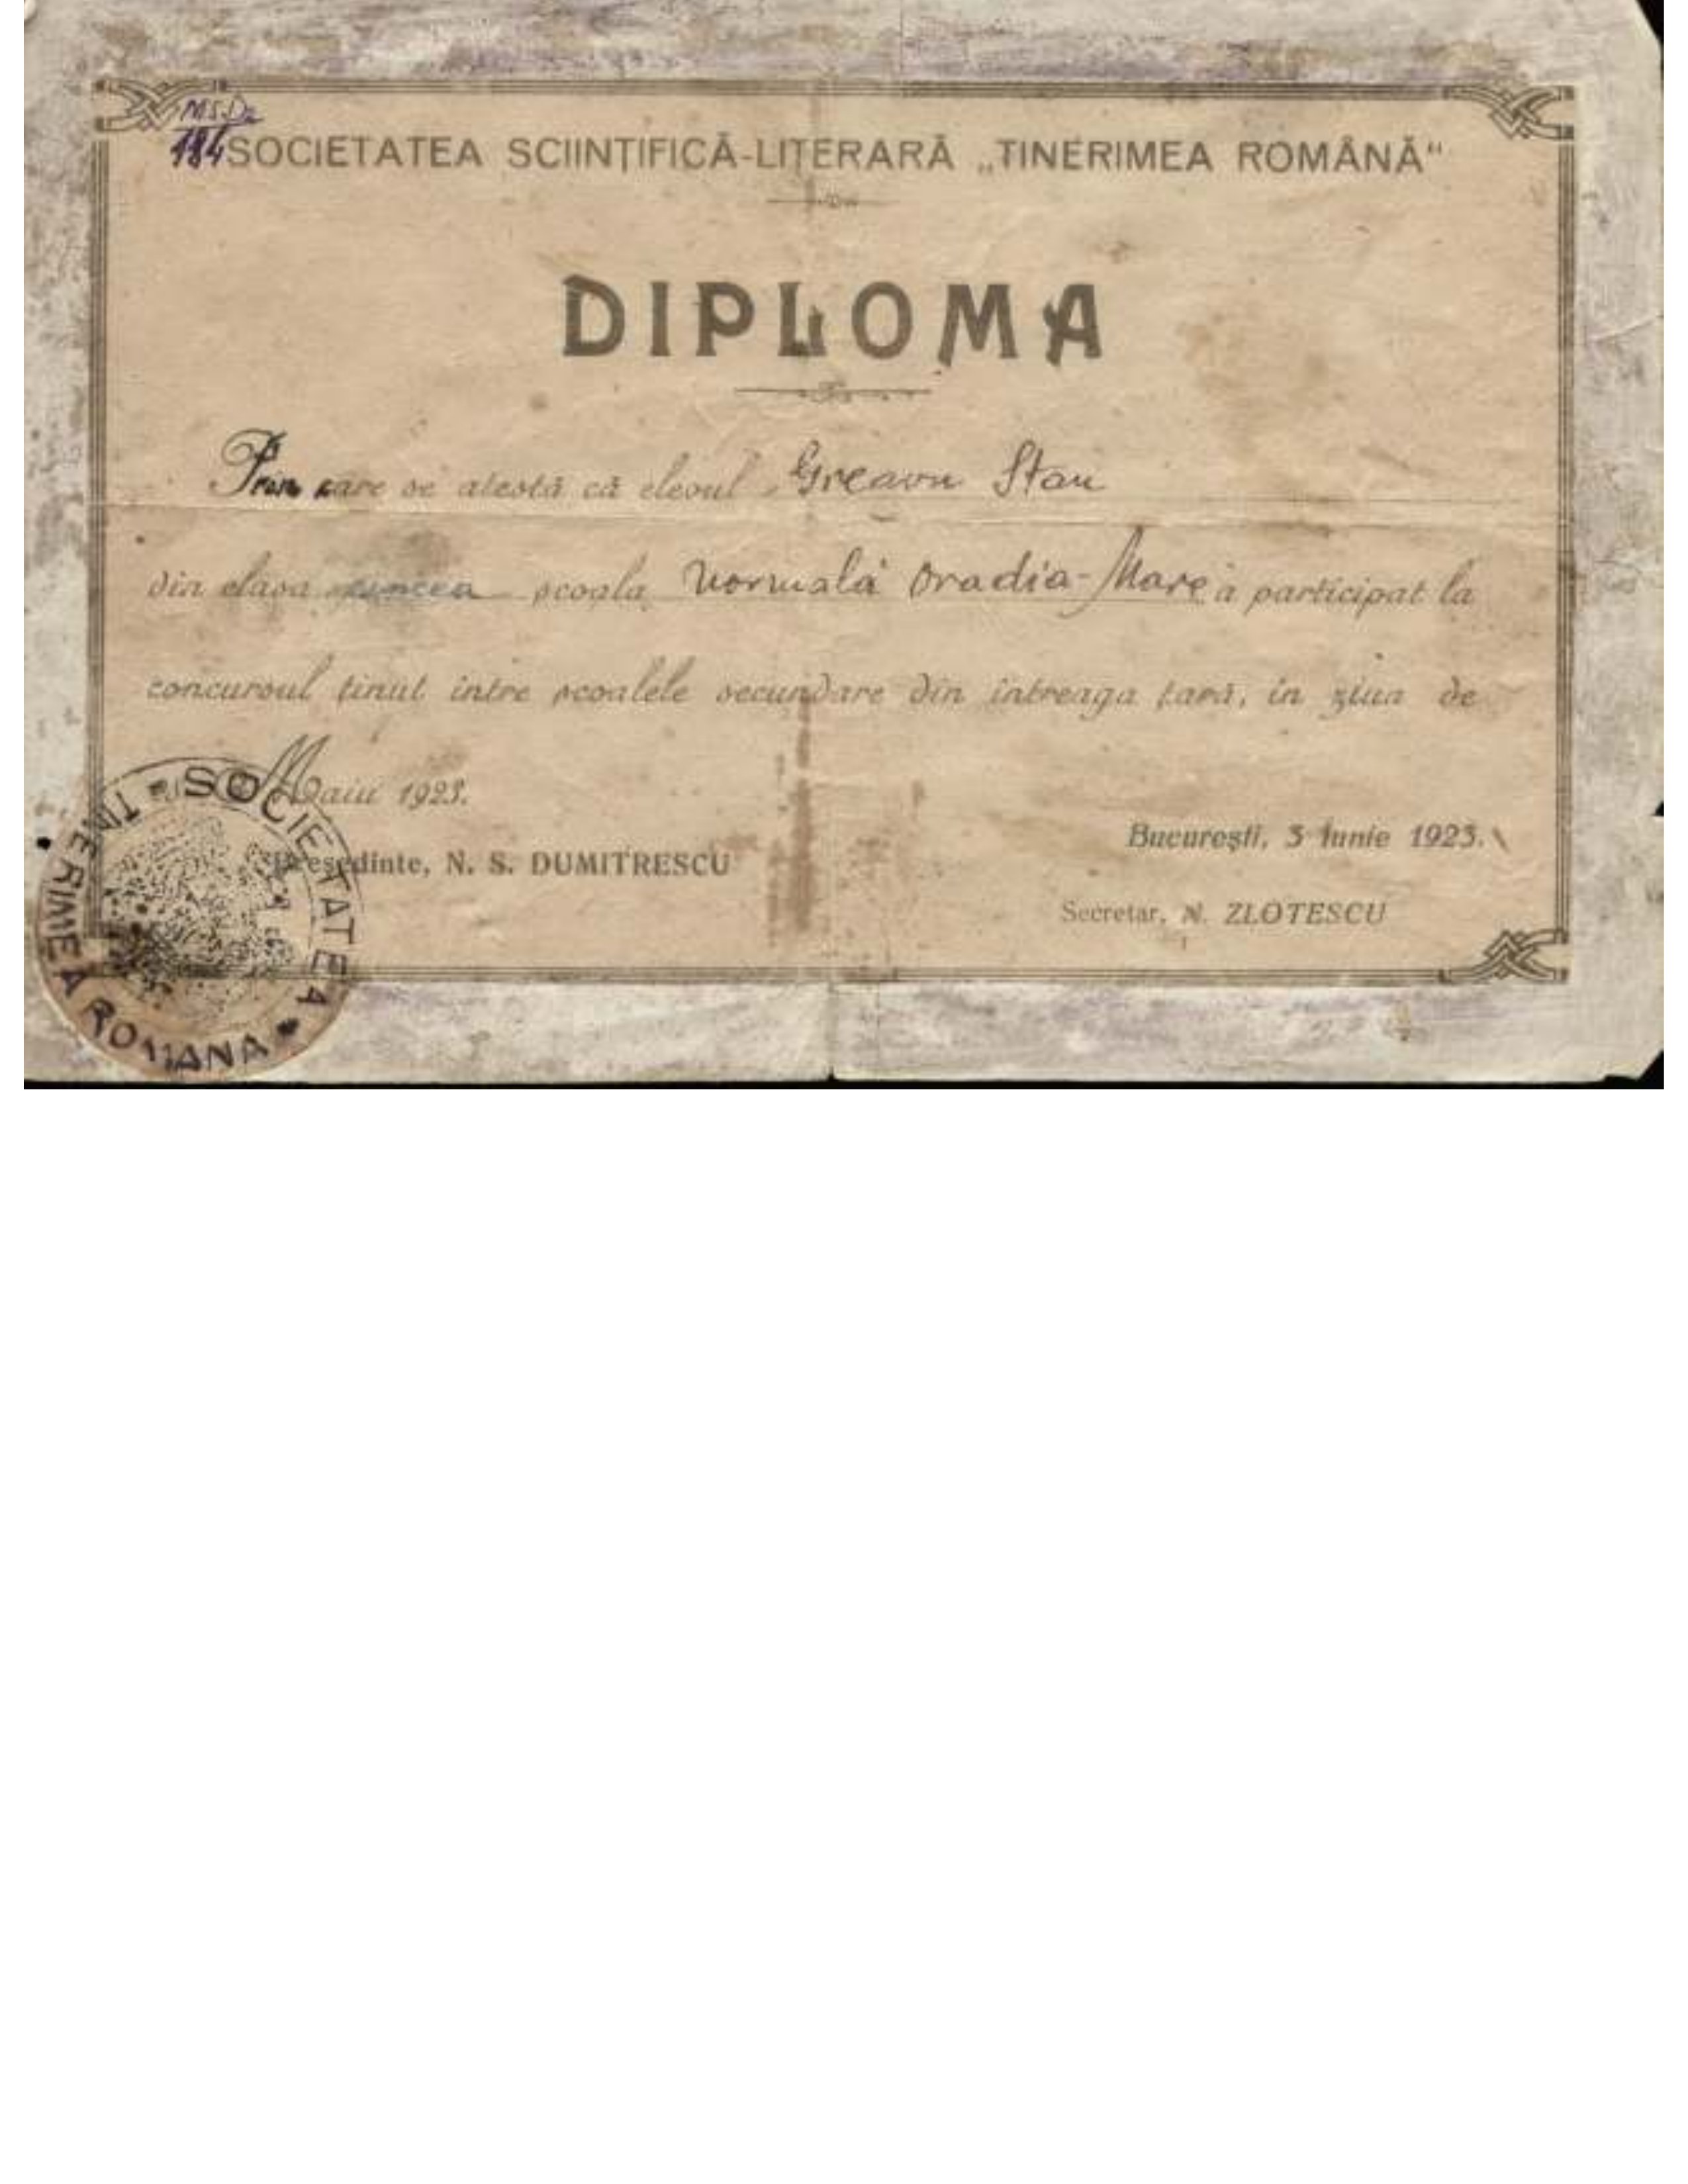 Ms. Dr.
184
SOCIETATEA SCIINȚIFICĂ-LITERARĂ „TINERIMEA ROMÂNĂ“
DIPLOMA
Prin care se atestă că elevul Greavu Stan
din clasa cincea școala Normală Oradia-Mare a participat la
concursul ținut între școalele secundare din întreaga țară, în ziua de
Maiu 1923.
București, 3 Iunie 1923.
Președinte, N. S. DUMITRESCU
Secretar, N. ZLOTESCU
SOCIETATEA TINERIMEA ROMANA